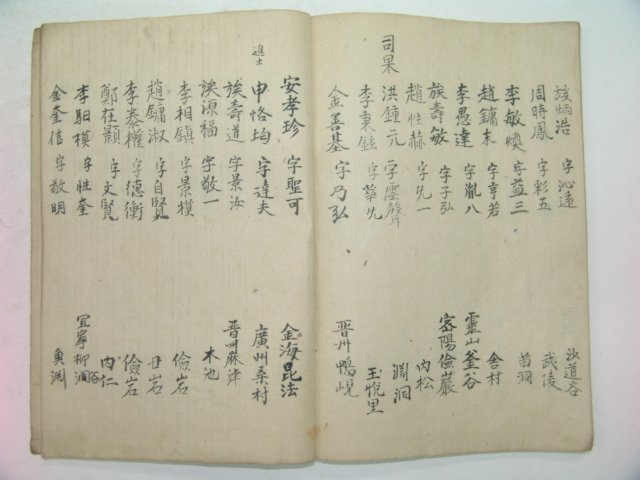 族炳浩 字沁遠 汝道谷
周時鳳 字彩五 武陵
李敏煥 字益三 苗洞
趙鏞末 字亨若 舍村
李愚達 字胤八 靈山釜谷
族壽敏 字子弘 密陽儉巖
趙性赫 字允一 內松
司果 洪鍾元 字聲 淵洞
李秉鉉 字華先 玉悅里
金善基 字乃弘 晋州鴨峴
安孝珍 字聖可 金海昆法
進士 申恪均 字達夫 廣州桑村
族壽道 字景汝 晋州麻津
族源福 字敬一 木池
李相鎮 字景模 儉岩
趙鏞淑 字自賢 丑岩
李泰權 字德衡 儉岩
鄭在顥 字文賢 內仁
李馹模 字性奎 宜寧柳洞谷
金奎信 字敬明 奠淵